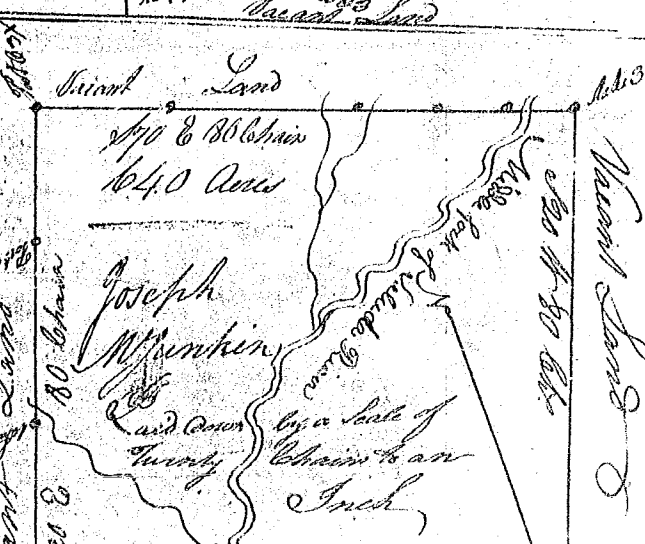 Vacant Land
Vacant Land
S 70 E 80 Chain
640 Acres
Joseph
McJunkin
Laid down by a Scale of
Twenty Chains to an
Inch
Middle fork of Saluda River
S 20 W 80 Chs
Vacant Land
80 Chain
Land